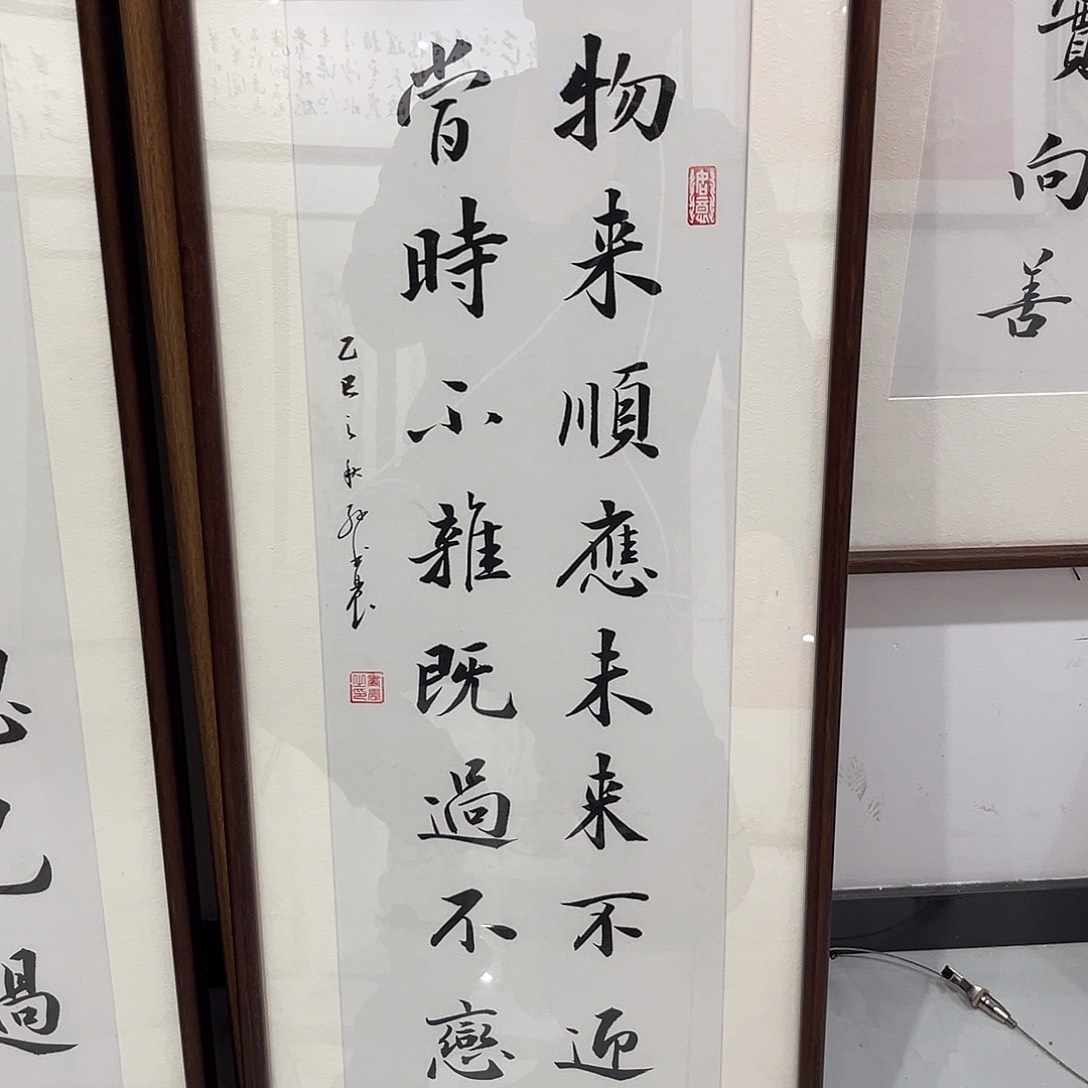 向善
物来順應未来不迎
當時不雜既過不戀
乙巳之秋
過